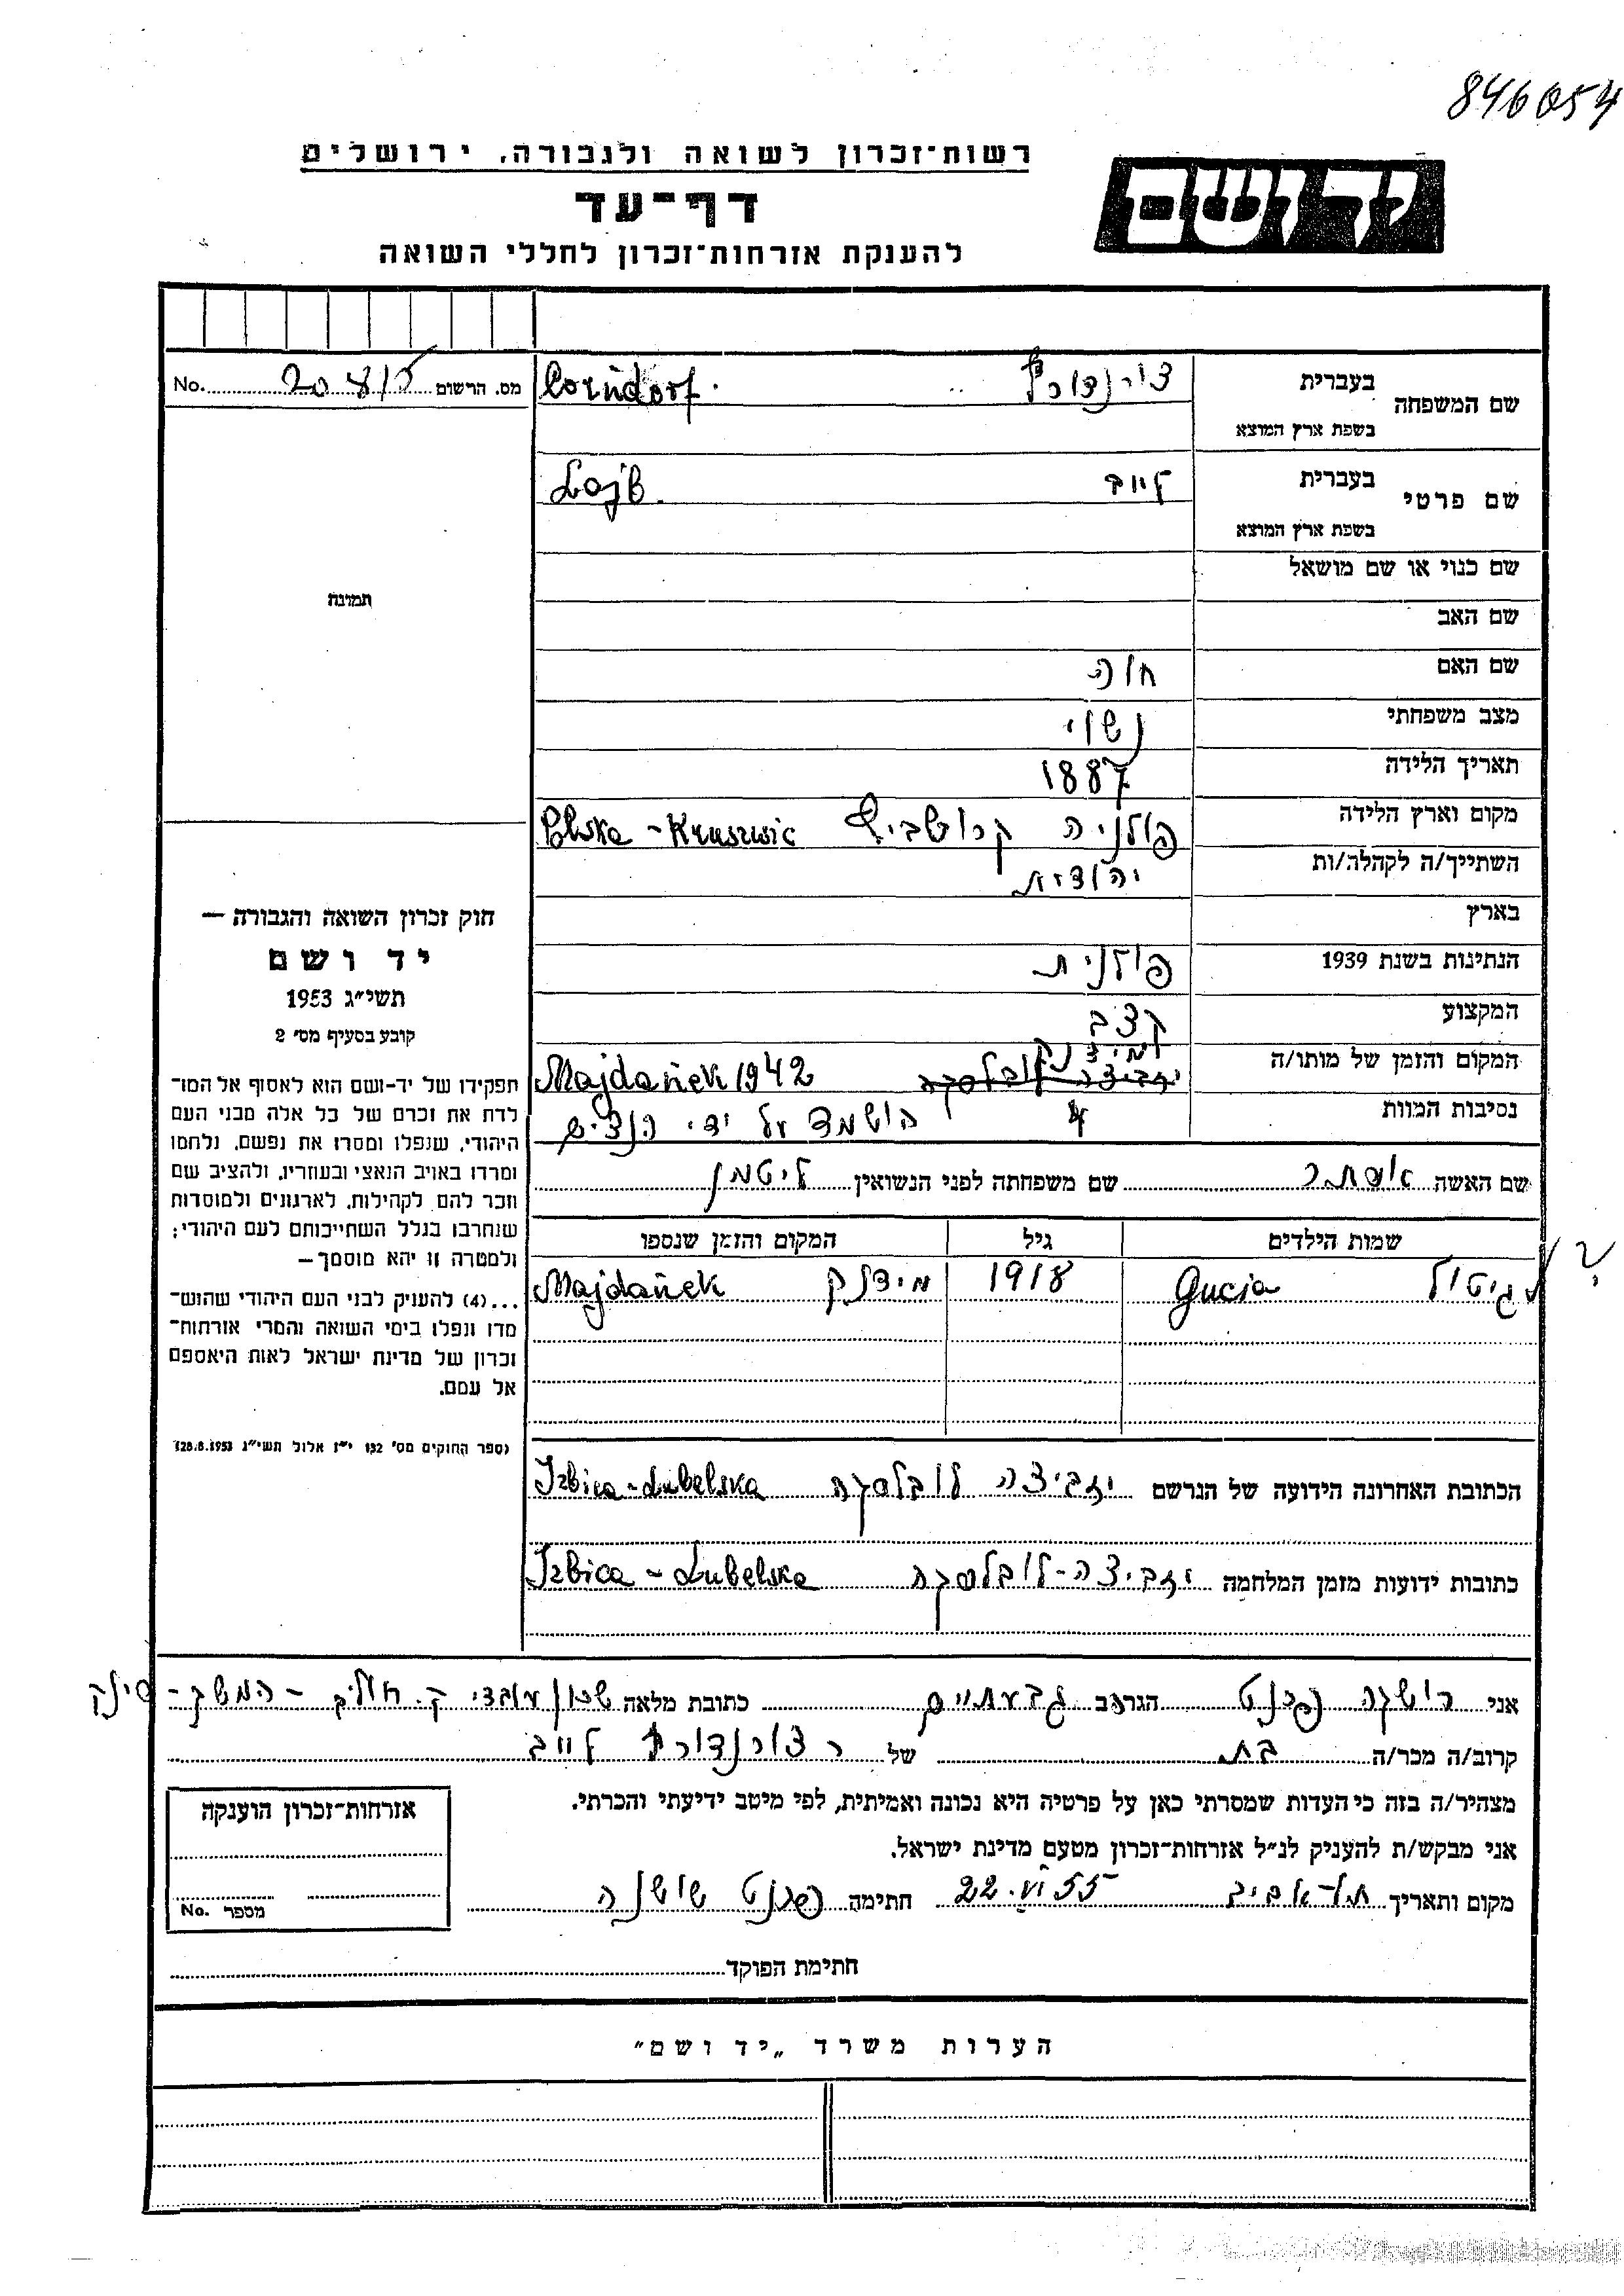 846054
רשות־זכרון לשואה ולגבורה, ירושלים
יד ושם
דף־עד
להענקת אזרחות־זכרון לחללי השואה
שם המשפחה בעברית צורנדורף Corndorf.
בשפת ארץ המוצא
מס. הרשום No.
שם פרטי בעברית לייב Lajb.
בשפת ארץ המוצא
שם כנוי או שם מושאל
תמונה
שם האב
שם האם חוה
מצב משפחתי נשוי
תאריך הלידה 1887
מקום וארץ הלידה פולניה קרושביץ Polska - Kruszwic
השתייך/ה לקהלה/ות יהודית
בארץ
הנתינות בשנת 1939 פולנית
המקצוע קצב
המקום והזמן של מותו/ה יזביצה לובלסקה מידנק Majdanek 1942
נסיבות המוות הושמד על ידי הנצים
שם האשה אסתר שם משפחתה לפני הנשואין ליטמן
שמות הילדים גיל המקום והזמן שנספו
גיטול Gucia 1918 מידנק Majdanek
?
חוק זכרון השואה והגבורה —
יד ושם
תשי״ג 1953
קובע בסעיף מס׳ 2
תפקידו של יד-ושם הוא לאסוף אל המו־
לדת את זכרם של כל אלה מבני העם
היהודי, שנפלו ומסרו את נפשם, נלחמו
ומרדו באויב הנאצי ובעוזריו, ולהציב שם
וזכר להם לקהילות, לארגונים ולמוסדות
שנחרבו בגלל השתייכותם לעם היהודי;
ולמטרה זו יהא מוסמך—
...(4) להעניק לבני העם היהודי שהוש־
מדו ונפלו בימי השואה והמרי אזרחות־
זכרון של מדינת ישראל לאות היאספם
אל עמם.
(ספר החוקים מס׳ 132 י״ז אלול תשי״ג 28.8.1953)
הכתובת האחרונה הידועה של הנרשם יזביצה לובלסקה Izbica-Lubelska
כתובות ידועות מזמן המלחמה יזביצה-לובלסקה Izbica - Lubelska
אני הגר/ה ב גבעתיים כתובת מלאה שכון עובדי ק. חולים -
קרוב/ה מכר/ה בת של צורנדורף לייב
מצהיר/ה בזה כי העדות שמסרתי כאן על פרטיה היא נכונה ואמיתית, לפי מיטב ידיעתי והכרתי.
אני מבקש/ת להעניק לנ״ל אזרחות־זכרון מטעם מדינת ישראל.
מקום ותאריך תל-אביב 22.VI 55 חתימה שושנה
אזרחות־זכרון הוענקה
מספר No.
חתימת הפוקד
הערות משרד „יד ושם״